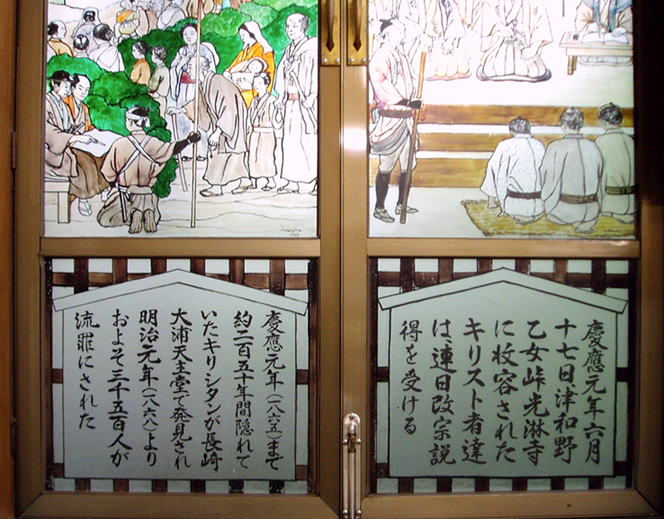 慶應元年六月
十七日津和野
乙女峠光淋寺
に收容された
キリスト者達
は、連日改宗説
得を受ける
慶應元年(一八六五)まで
約二百五十年間隠れて
いたキリシタンが長崎
大浦天主堂で発見され
明治元年(一八六八)より
およそ三千五百人が
流罪にされた